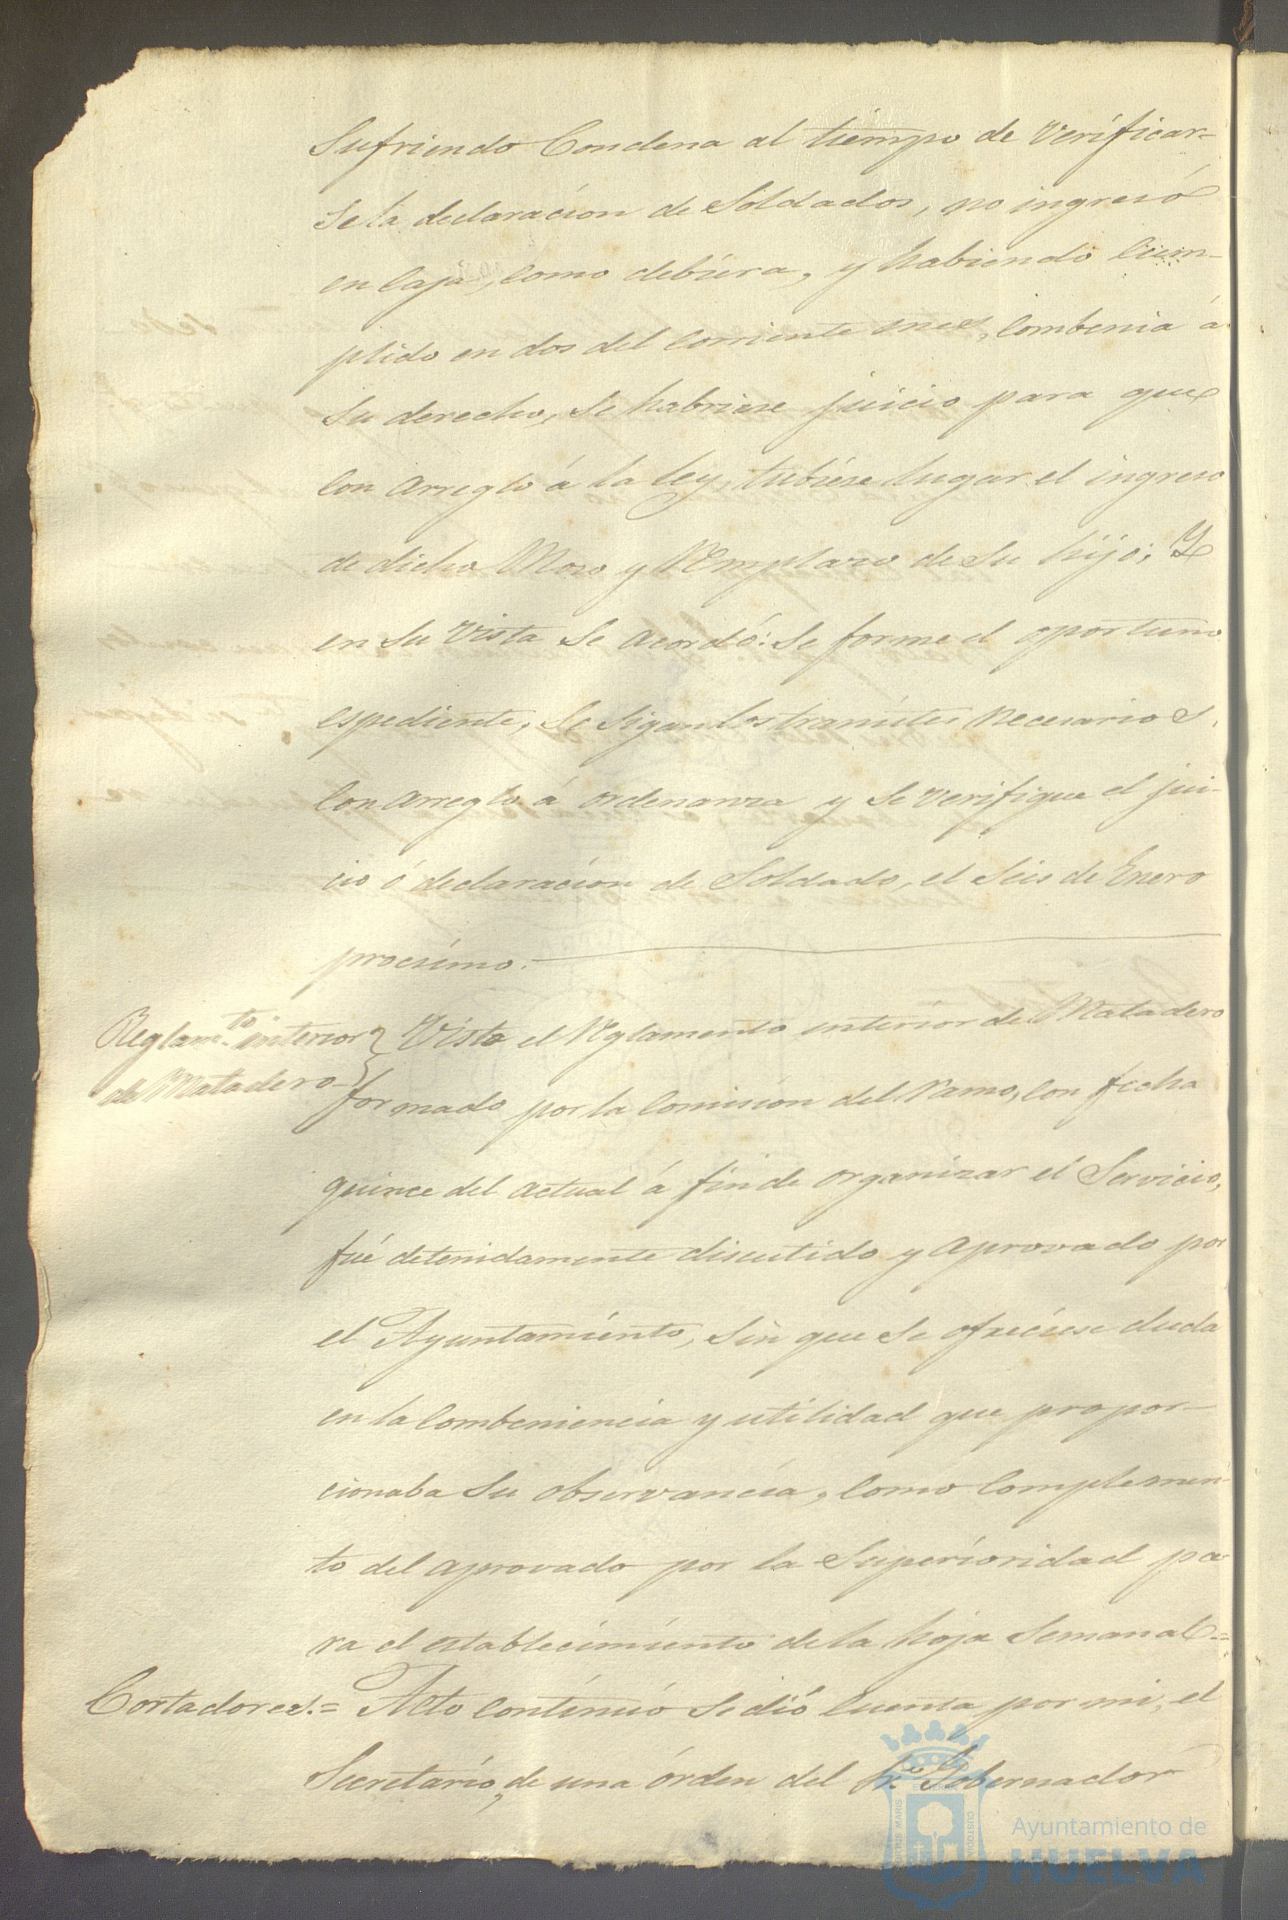 Sufriendo Condena al tiempo de Verificar-
se la declaración de Soldados, no ingresó
en Caja, como debiera, y habiendo Cum-
plido en dos del Corriente mes, Combenia á
su derecho, se habriese juicio para que
Con arreglo á la ley, tubiese lugar el ingreso
de dicho Moso y Remplazo de su hijo; Y
en su Vista se acordó: se forme el oportuno
espediente, se sigan los tramites necesarios
Con arreglo á ordenanza y se verifique el jui-
cio ó declaración de Soldado, el Seis de Enero
procsimo.
Reglam.to interior
de Matadero
Visto el Reglamento interior de Matadero
formado por la Comision del ramo, con fecha
quince del actual á fin de organizar el Servicio,
fué detenidamente discutido y aprovado por
el Ayuntamiento, sin que se ofreciese duda
en la Combeniencia y utilidad que propor-
cionaba su observancia, como complemen-
to del aprovado por la Superioridad pa-
ra el establecimiento de la hoja Semanal=
Cortadores.= Acto contínuo se dió Cuenta por mi, el
Secretario, de una órden del Sr. Gobernador
Ayuntamiento de
HUELVA